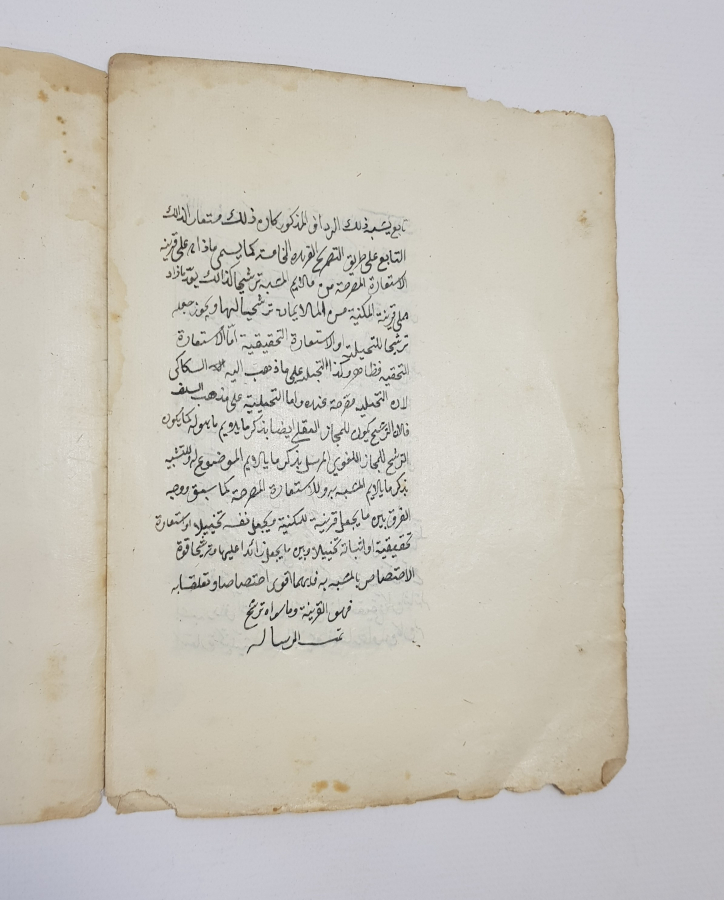 تابع يشبه ذلك الرداف المذكور كان ذلك مستعار لذلك
التابع على طريق التصريح الفريدة الخامسة كما يسمى ما زاد على قرينة
الاستعارة المصرحة من ملايم المشبه ترشيحا كذلك يعد ما زاد
على قرينة المكنية من الملايمات ترشيحا لها ويجوز جعله
ترشيحا للتخيلية او الاستعارة التحقيقية اما الاستعارة
التحقيقية فظاهر وكذا التخيلية على ما ذهب اليه السكاكى
لان التخيلية مصرحة عنده واما التخيلية على مذهب السلف
فلان الترشيح يكون للمجاز العقلى ايضا بذكر ما يلايم ما هو له كما يكون
الترشيح للمجاز اللغوى المرسل بذكر ما يلايم الموضوع له وللتشبيه
بذكر ما يلايم المشبه به وللاستعارة المصرحة كما سبق ووجه
الفرق بين ما يجعل قرينة للمكنية ويجعل نفسه تخييلا او استعارة
تحقيقية او اثباته تخييلا وبين ما يجعل زائدا عليها وترشيحا قوة
الاختصاص بالمشبه به فايهما اقوى اختصاصا وتعلقا به
فهو القرينة وما سواه ترشيح
تمت الرسالة